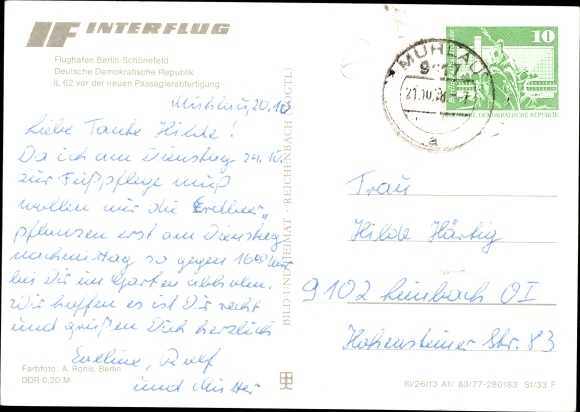 INTERFLUG
Flughafen Berlin-Schönefeld
Deutsche Demokratische Republik
IL 62 vor der neuen Passagierabfertigung
Mühlau, 20.10
Liebe Tante Hilde!
Da ich am Dienstag 24.10.
zur Fußpflege muß
wollen wir die Erdbeer-
pflanzen erst am Dienstag
nachmittag so gegen 16 00 Uhr
bei Dir im Garten abholen.
Wir hoffen es ist Dir recht
und grüßen Dich herzlich
Eveline, Rolf
und Mutter
Farbfoto: A. Rohls, Berlin
DDR 0,20 M
BILD UND HEIMAT · REICHENBACH (VOGTL)
MÜHLAU
21.10.78
a
10
DEUTSCHE DEMOKRATISCHE REPUBLIK
Frau
Hilde Härtig
9102 Limbach OI
Hohensteiner Str. 83
III/26/13 A1/ 83/77-280183 S1/33 F